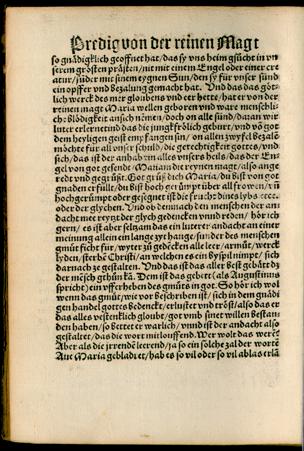 Predig von der reinen Magt
so gnädigklich geoffnet hat/das sy vns heim gsücht in vn
serem grösten prästen/nit mit einem Engel oder einer cre
atur/sunder mit sinem eygnen Sun/den sy für vnser sünd
ein opffer vnd bezalung gemacht hat. Vnd das das göt-
lich werck des mer gloubens vnd eer hette/hat er von der
reinen magt Maria wellen geboren vnd ware menschli-
che blödigkeit an sich nemen/doch on alle sünd/daran wir
luter erlernetind das die junckfrölich geburt/vnd vō got
dem heyligen geist empfangen sin/on allen zwyfel bezalē
möchte für all vnser schuld/die gerechtigkeit gottes/vnd
sich/das ist der anhab in alles vnsers heils/das der En-
gel von got gesendt/Mariam die reynen magt/also ange
redt vnd gegrützt. Got grütz dich Maria/du bist von got
gnaden erfüllt/du bist hoch gerümpt über all frowen/
hochgerümpt oder gesegnet ist die frucht dines lybs
oder der glychen. Vnd ob dennocht den menschen der an-
dacht me reytzt der glych gedencken vnnd reden/hör ich
gern/es ist aber seltzam das ein luterer andacht an einer
meinung allein ein lange zyt hange/sunder des menschen
gmüt ficht für/wyter zů gedēcken alle leer/armüt/werck
lyden/sterbē Christi/an welchen es ein byspil nimpt/sich
darnach ze gestalten. Vnd das ist das aller best gebätt dz
der mēsch gethůn kā. Dem ist das gebett (als Augustinus
spricht) ein vfferheben des gmüts in got. So hör ich wol
wenn das gmüt/wie vor beschriben ist/sich in dem gnädi
gen handel gottes bedenckt/erlustet vnd tröst/also das er
das alles vestenklich gloubt/got vmb sinet willen bestan-
den haben/so bettet er warlich/vnnd ist der andacht also
gestaltet/das die wort mitlouffend. Wer wolt das werē
Aber als die jrrende leerend/ja so ein solche zal der wortē
Aue Maria gebladret/hab es so vil oder so vil ablas erlā